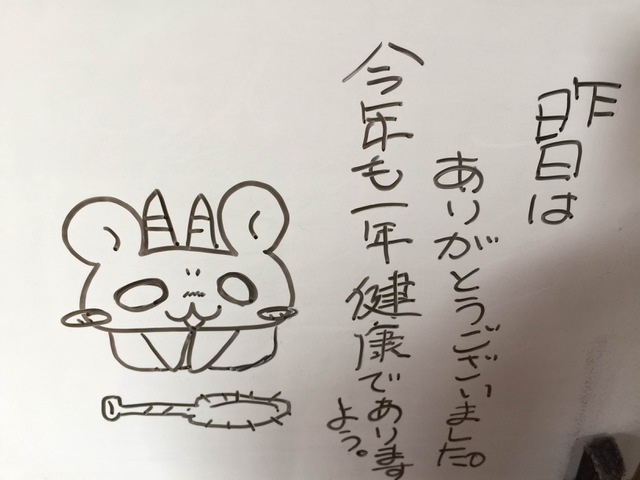 昨日は
ありがとうございました。
今年も一年健康であります
よう。